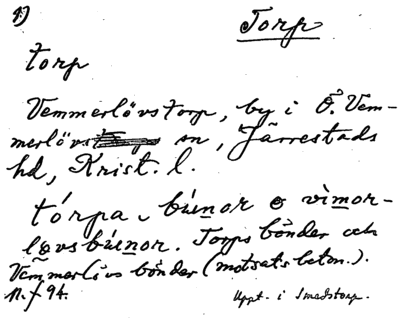 9)
Torp
torp
Vemmerlövstorp, by i Ö. Vem-
merlövs sn, Järrestads
hd, Krist. l.
tórpa búenor o vìmor-
løvsbúenor. Torps bönder och
Vemmerlövs bönder (motsats beton.).
n. f 94.
Uppt. i Smedstorp.